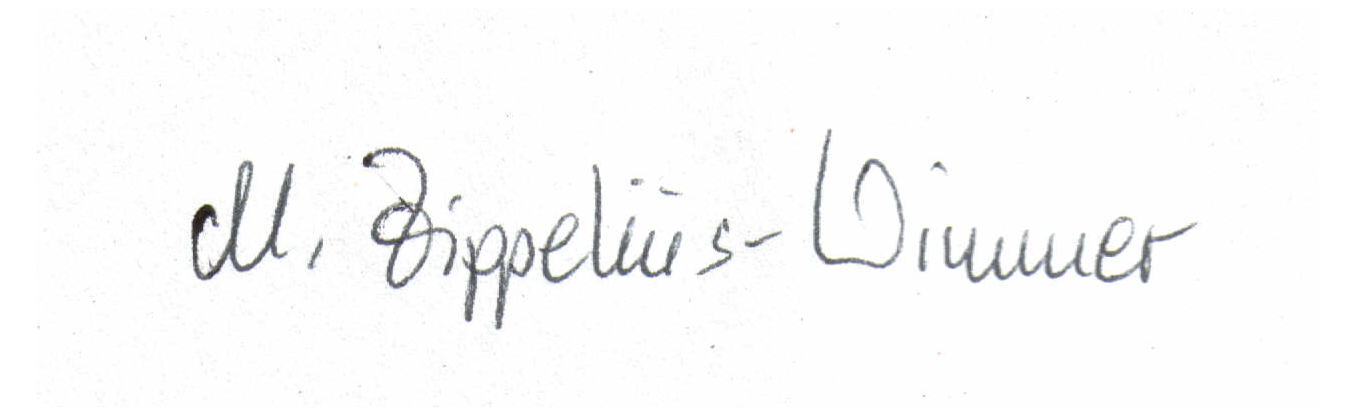 M. Zippelius-Wimmer